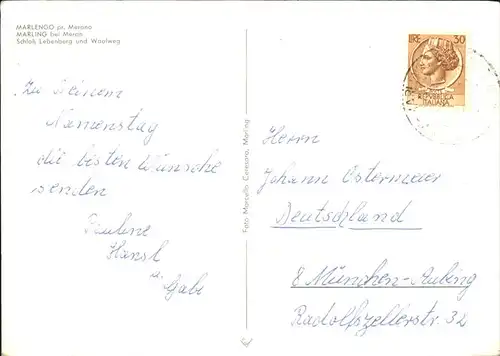 MARLENGO pr. Merano
MARLING bei Meran
Schloß Lebenberg und Waalweg
Zu Deinem
Namenstag
die besten Wünsche
senden
Pauline
Hansl
u.
Gabi
Foto Marcello Ceresara, Marling
LIRE 30
REPVBBLICA
ITALIANA
Herrn
Johann Ostermeier
Deutschland
8 München-Aubing
Radolfszellerstr 32